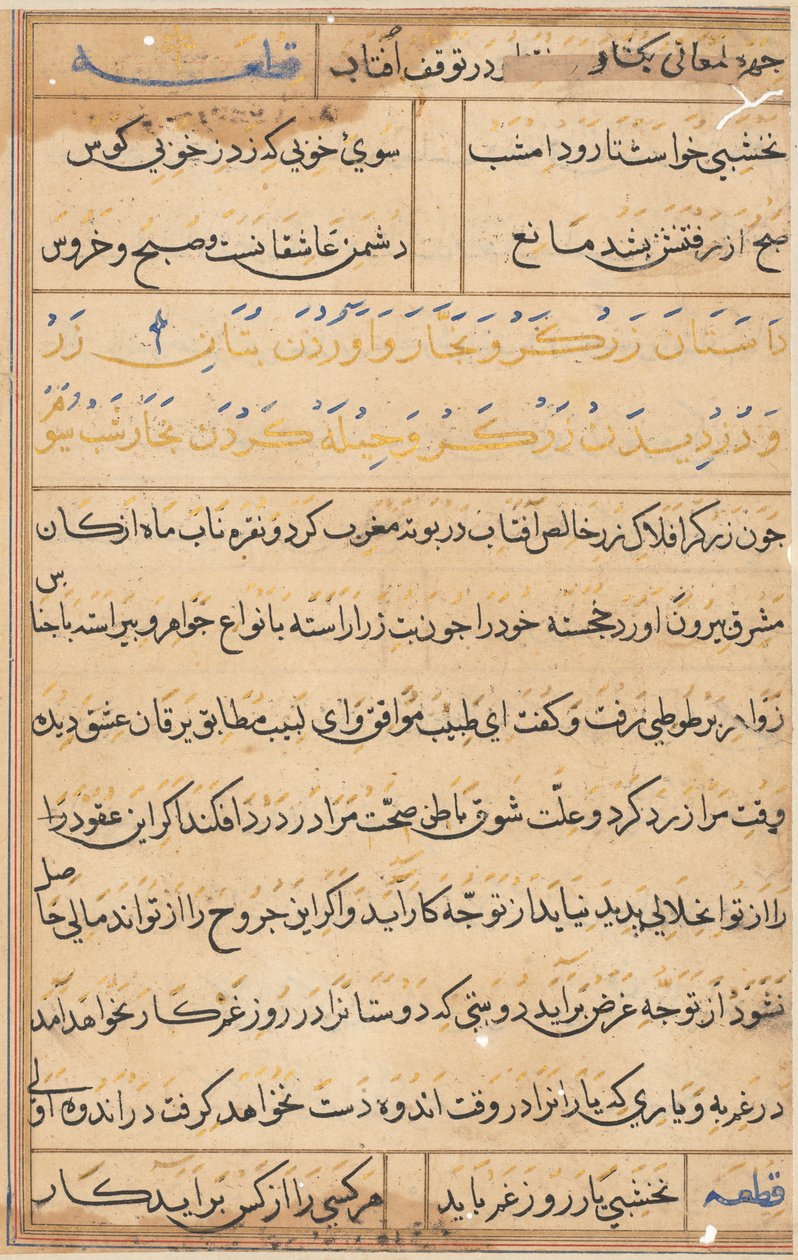 چهره لمعانی بکشاد در توقف افتاب قطعه
نخشبی خواست تا رود امشب سوی خوبی که زد ز خوبی کوس
صبح از رفتنش بشد مانع دشمن عاشقانست و صبح و خروس
داستان زرگر و نجار و اوردن بتان زر
و دزدیدن زرگر و حیله کردن نجار شب سوم
چون زرگر افلاک زر خالص افتاب در بوته مغرب کرد و نقره ناب ماه از کان
مشرق بیرون اورد خجسته خود را چون بت زر اراسته بانواع جواهر و پیراسته باجناس
زواهر بر طوطی رفت و کفت ای طبیب موافق و ای لبیب مطابق یرقان عشق دیده
وقت مرا زرد کرد و علّت شوق باطن صحّت مرا در درد افکند اکر این عقود را
را از تو انحلالی پدید نیاید از توجّه کار آید و اکر این جروح را از تو اندمالی حاصل
نشود از توجّه غرض براید دوستی که دوستانرا در روز غم کار نخواهد آمد
در غم به و یاری که یارانرا در وقت اندوه دست نخواهد کرفت در اندوه اولی
قطعه نخشبی یار روز غم باید هر کسی را از کس براید کار